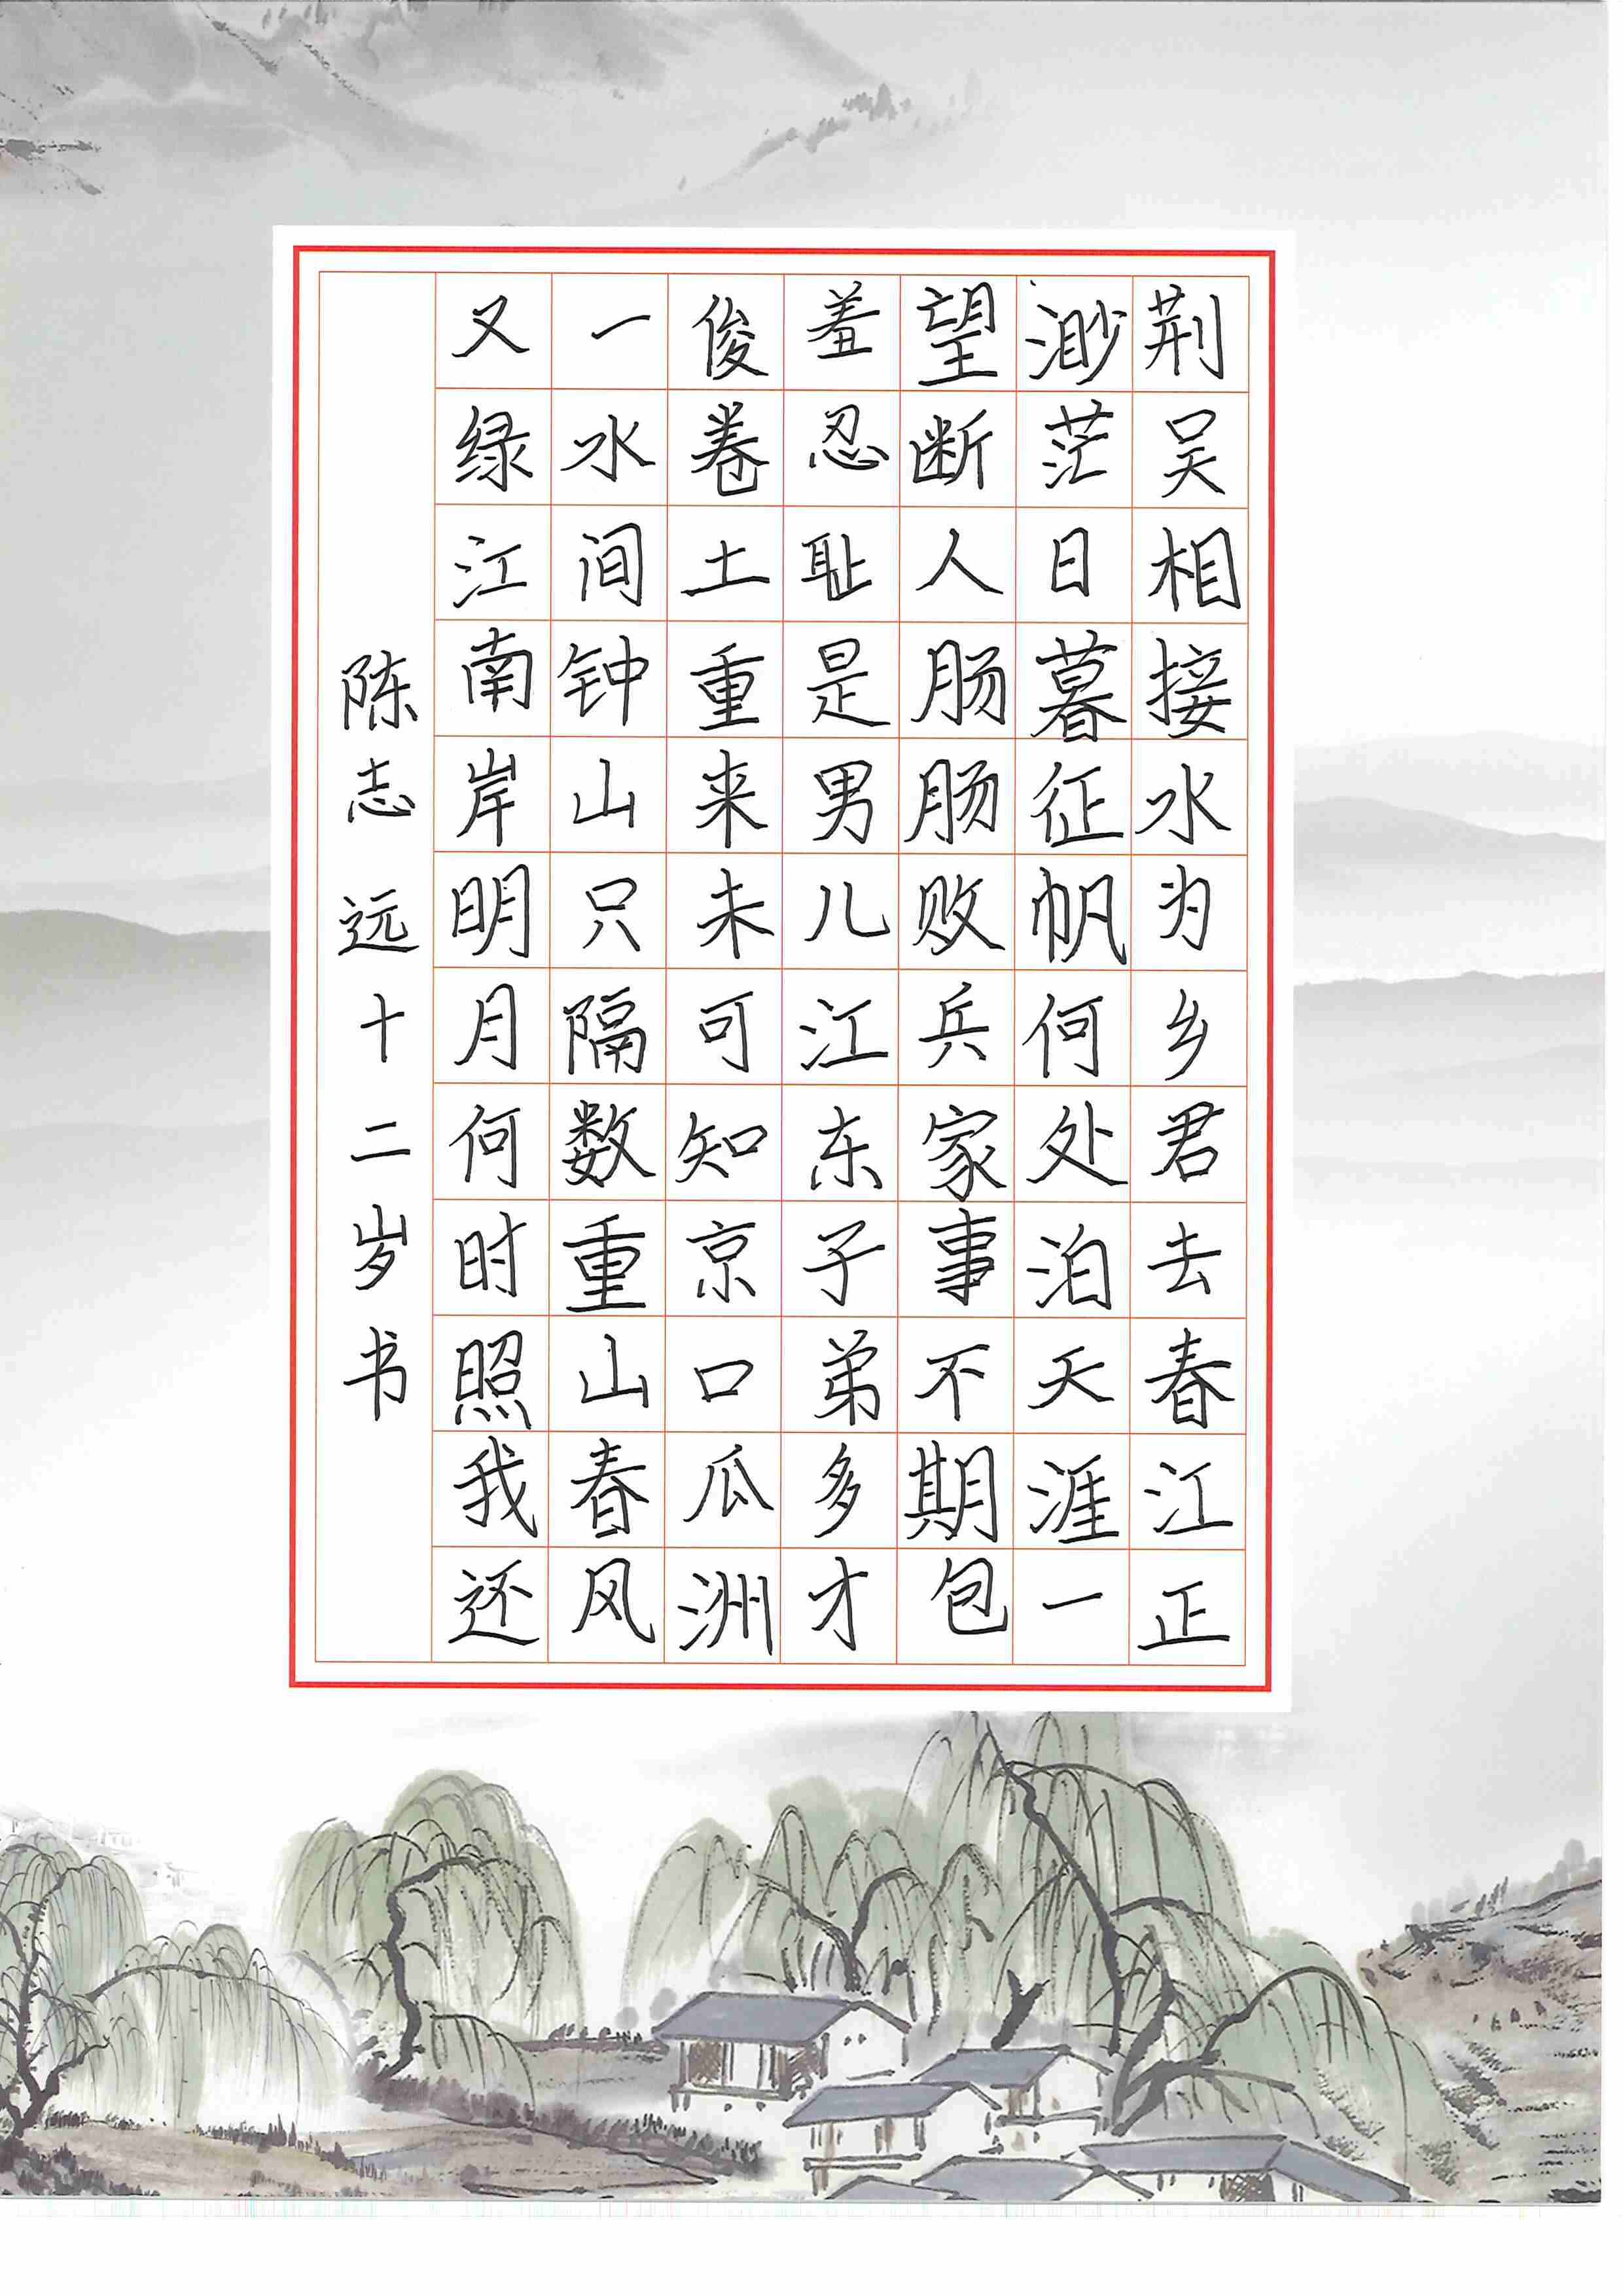 荆吴相接水为乡君去春江正
渺茫日暮征帆何处泊天涯一
望断人肠肠败兵家事不期包
羞忍耻是男儿江东子弟多才
俊卷土重来未可知京口瓜洲
一水间钟山只隔数重山春风
又绿江南岸明月何时照我还
陈志远十二岁书